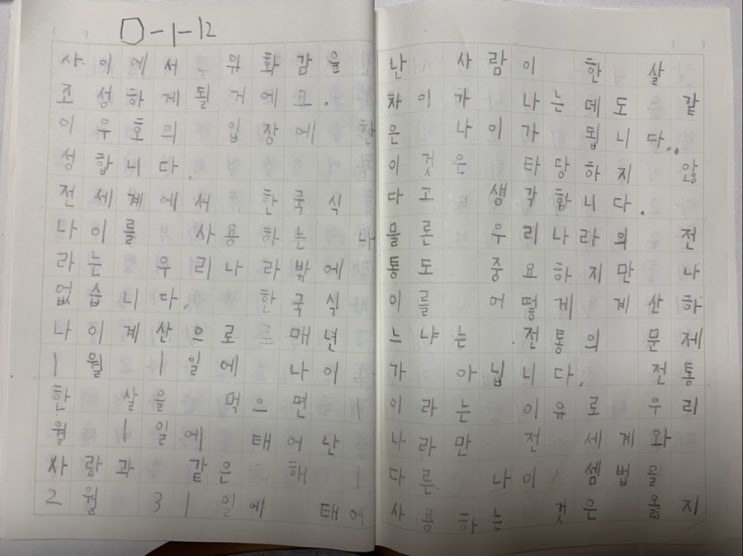 ㅁ-1-12
사이에서 위화감을
조성하게 될 거예요.
이우호의 입장에 찬
성합니다.
전 세계에서 한국식
나이를 사용하는 나
라는 우리나라밖에
없습니다. 한국식
나이 계산으로 매년
1월 1일에 나이
한 살을 먹으면 1
월 1일에 태어난
사람과 같은 해
2월 31일에 태어
난 사람이 한 살
차이가 나는데도 같
은 나이가 됩니다.
이것은 타당하지 않
다고 생각합니다.
물론 우리나라의 전
통도 중요하지만 나
이를 어떻게 계산하
느냐는 전통의 문제
가 아닙니다. 전통
이라는 이유로 우리
나라만 전 세계와
다른 나이 셈법을
사용하는 것은 옳지